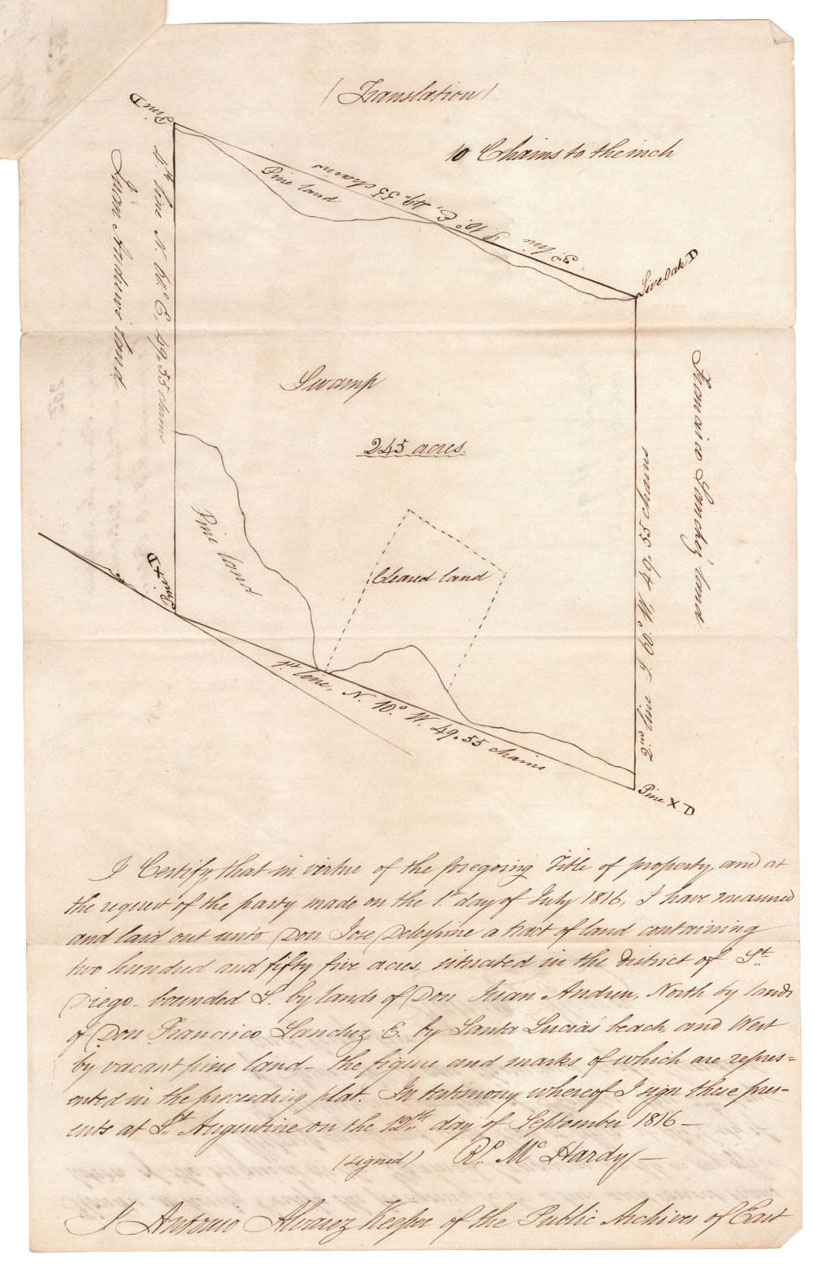 (Translation)
10 Chains to the inch
Pine D
3rd line S 10° E, 49.55 chains
Pine land
Live Oak D
4th line N. 60° E, 49.55 chains
Juan Andrews land
Swamp
245 acres.
Francisco Sanchez' land
2nd line S 60° W, 49.55 chains
Pine land
Cleared land
Pine + D
1st line, N. 10° W. 49.55 chains
Pine X D
I Certify that in virtue of the foregoing Title of property and at
the request of the party made on the 1st day of July 1816, I have measured
and laid out unto Don Jose Delespine a tract of land containing
two hundred and fifty five acres, situated in the District of St
Diego - bounded S. by lands of Don Juan Andreu, North by lands
of Don Francisco Sanchez E. by Santa Lucia's beach and West
by vacant pine land - the figure and marks of which are repres=
ented in the preceeding plat. In testimony whereof I sign these pres-
ents at St Augustine on the 12th day of September 1816 -
(signed) Rt. Mc Hardy -
I Antonio Alvarez Keeper of the Public Archives of East